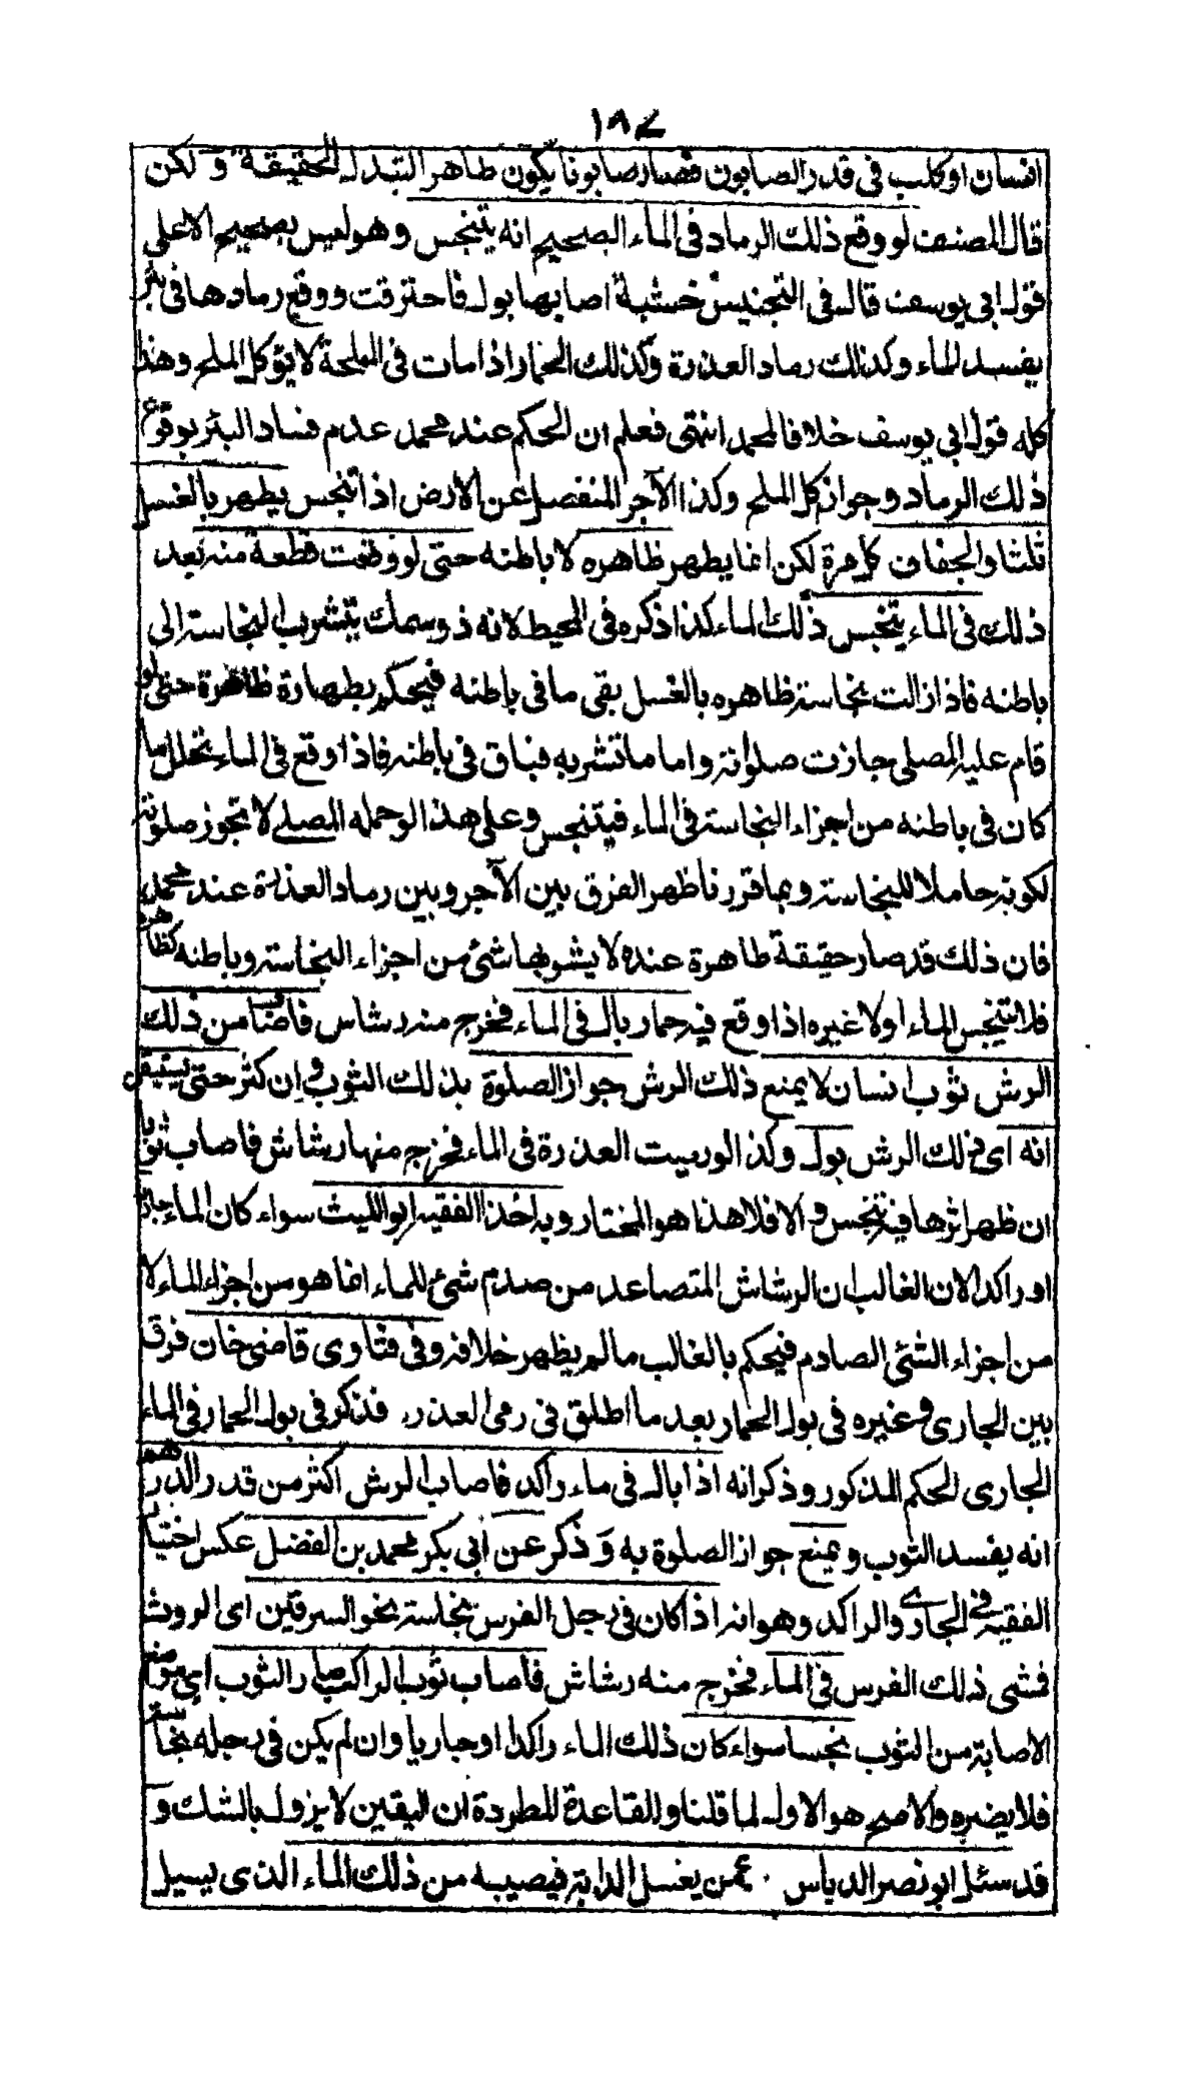 ١٨٧
انسان او كلب فى قدر الصابون فصار صابونا يكون طاهرا لتبدل الحقيقة و لكن
قال المصنف لو وقع ذلك الرماد فى الماء الصحيح انه يتنجس وهو ليس بصحيح الا على
قول ابى يوسف قال فى التجنيس خشبة اصابها بول فاحترقت ووقع رمادها فى بئر
يفسد الماء وكذلك رماد العذرة وكذلك الحمار اذا مات فى المملحة لا يؤكل الملح وهذا
كله قول ابى يوسف خلافا لمحمد انتهى فعلم ان الحكم عند محمد عدم فساد البئر بوقوع
ذلك الرماد وجواز اكل الملح وكذا الآجر المنفصل عن الارض اذا تنجس يطهر بالغسل
ثلثا والجفاف كل مرة لكن انما يطهر ظاهره لا باطنه حتى لو وقعت قطعة منه بعد
ذلك فى الماء يتنجس ذلك الماء كذا ذكره فى المحيط لانه ذو سمك يتشرب النجاسة الى
باطنه فاذا زالت نجاسة ظاهره بالغسل بقى ما فى باطنه فيحكم بطهارة ظاهرة حتى لو
قام عليه المصلى جازت صلوته واما ما تشربه فباق فى باطنه فاذا وقع فى الماء تخلل ما
كان فى باطنه من اجزاء النجاسة فى الماء فيتنجس وعلى هذا لو حمله المصلى لا تجوز صلوته
لكونه حاملا للنجاسة وبما قررنا ظهر الفرق بين الآجر وبين رماد العذرة عند محمد
فان ذلك قد صار حقيقة طاهرة عنده لا يشوبها شئ من اجزاء النجاسة وباطنه كظاهره
فلا يتنجس الماء او لا غيره اذا وقع فيه حمار بال فى الماء فخرج منه رشاش فاصاب من ذلك
الرش ثوب انسان لا يمنع ذلك الرش جواز الصلوة بذلك الثوب وان كثر حتى يستيقن
انه اى ذلك الرش بول وكذا لو رميت العذرة فى الماء فخرج منها رشاش فاصاب ثوبا
ان ظهر اثرها فيه تنجس و الا فلا هذا هو المختار وبه اخذ الفقيه ابو الليث سواء كان الماء جاريا
او راكدا لان الغالب ان الرشاش المتصاعد من صدم شئ للماء انما هو من اجزاء الماء لا
من اجزاء الشئ الصادم فيحكم بالغالب ما لم يظهر خلافه وفى فتاوى قاضى خان فرق
بين الجارى و غيره فى بول الحمار بعد ما اطلق فى رمى العذرة فذكر فى بول الحمار فى الماء
الجارى الحكم المذكور وذكر انه اذا بال فى ماء راكد فاصاب الرش اكثر من قدر الدرهم
انه يفسد الثوب ويمنع جواز الصلوة به و ذكر عن ابى بكر محمد بن الفضل عكس اختيار
الفقيه فى الجارى والراكد وهو انه اذا كان فى رجل الفرس نجاسة نحو السرقين اى الروث
فمشى ذلك الفرس فى الماء فخرج منه رشاش فاصاب ثوب الراكب صار الثوب اى موضع
الاصابة من الثوب نجسا سواء كان ذلك الماء راكدا او جاريا وان لم يكن فى رجله نجاسة
فلا يضره والاصح هو الاول لما قلنا وللقاعدة المطردة ان اليقين لا يزول بالشك و
قد سئل ابو نصر الدباس عمن يغسل الدابة فيصيبه من ذلك الماء الذى يسيل